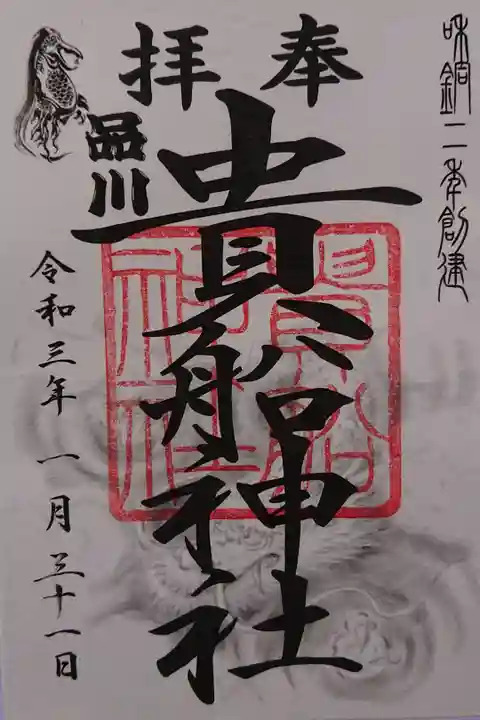 和銅二年創建
奉拝
貴船神社
品川
令和三年一月三十一日